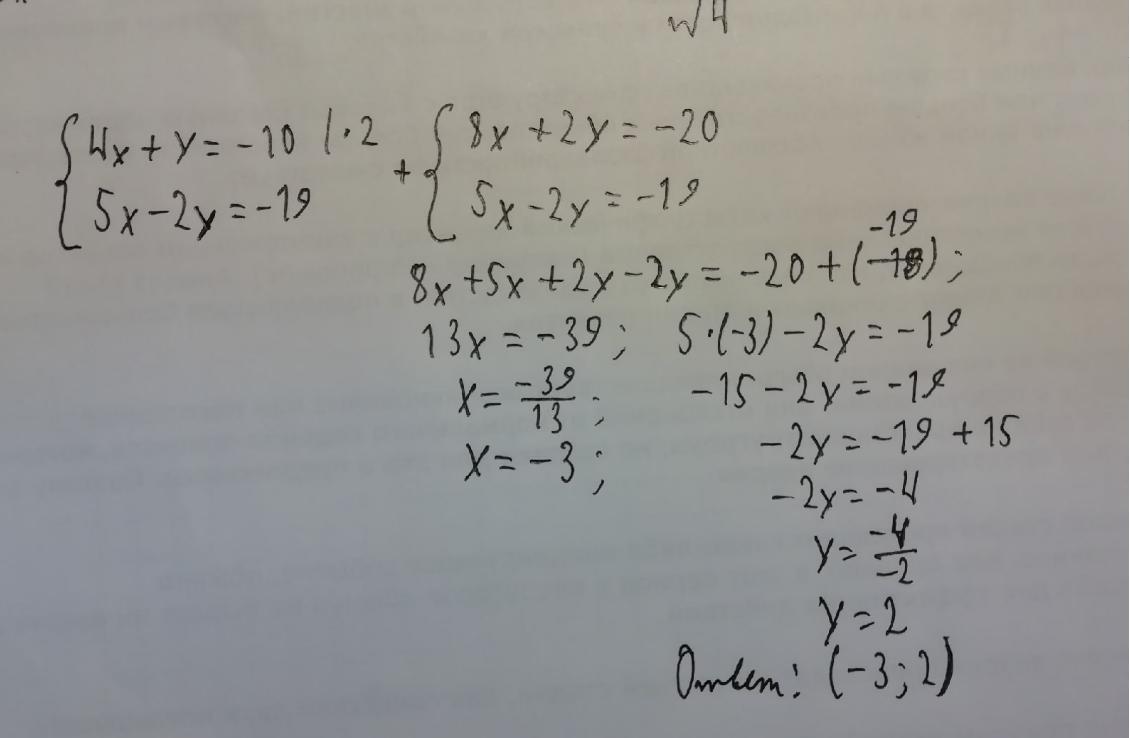 №4
{4x + y = -10 | · 2 + {8x + 2y = -20
{5x - 2y = -19 {5x - 2y = -19
-19
8x + 5x + 2y - 2y = -20 + (-18);
13x = -39; 5·(-3) - 2y = -19
x = -39/13; -15 - 2y = -19
x = -3; -2y = -19 + 15
-2y = -4
y = -4/-2
y = 2
Ответ: (-3; 2)